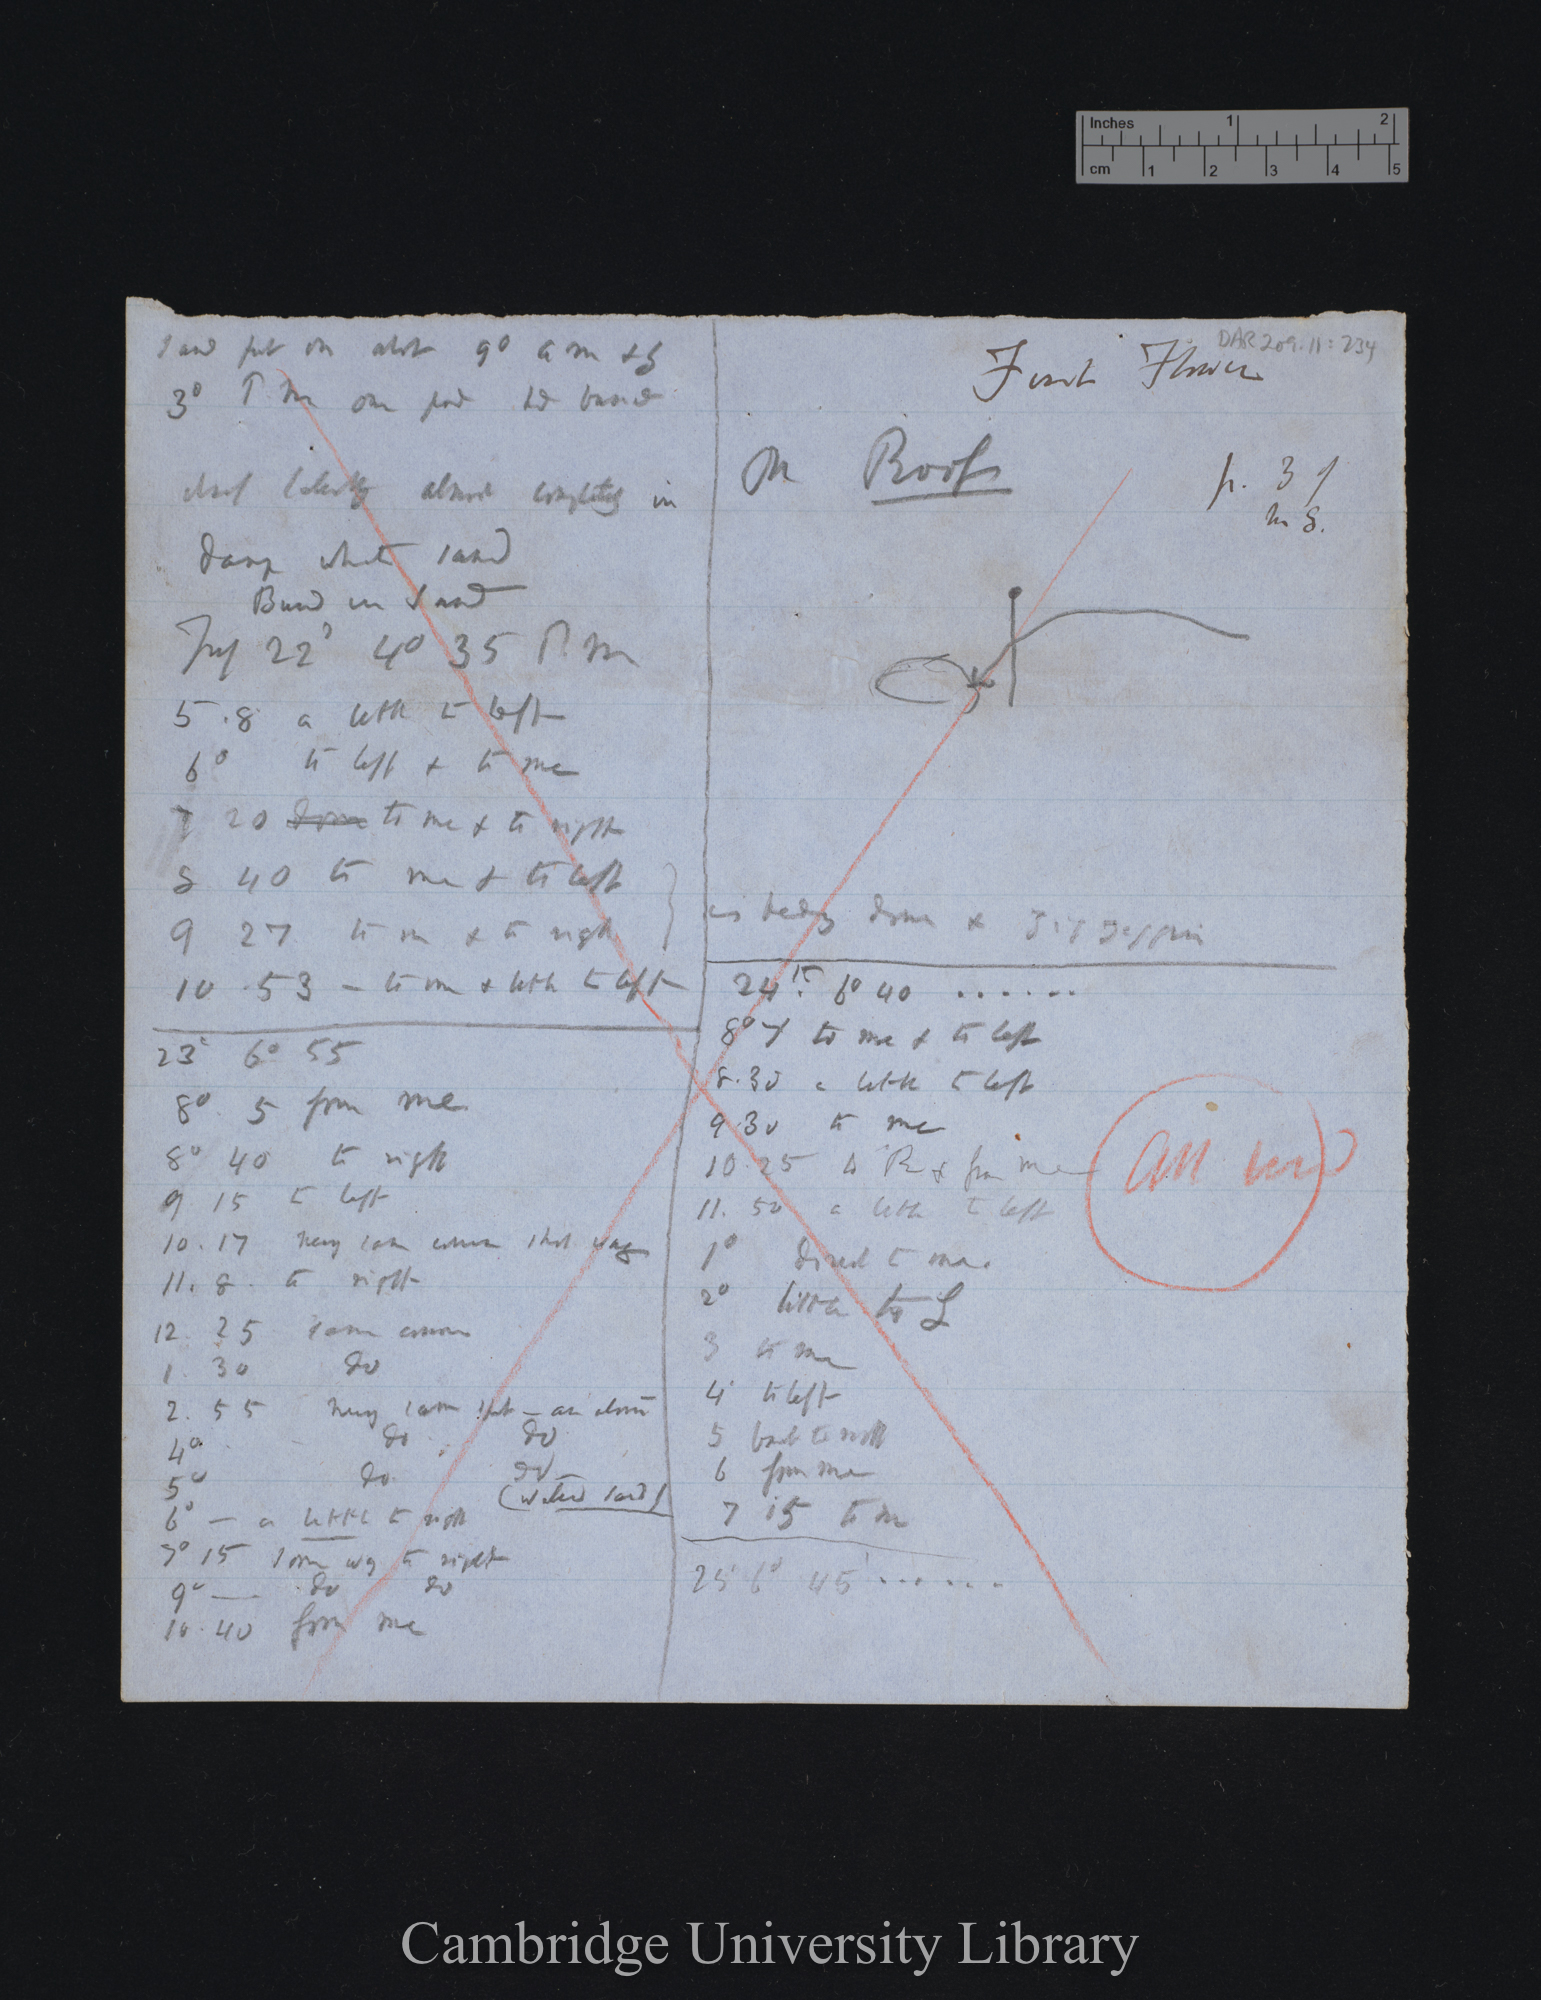 Inches 1 2
cm 1 2 3 4 5
DAR 209.11: 234
sand put on about 9° a m &
3° P. M one pod
almost completely in
damp white sand
Buried in Sand
22d 4° 35 P. M
5.8 a little to left
6° to left & to me
7 20 to me & to right
8 40 to me & to left
9 27 to me & to right
10.53 — to me & little to left
23d 6° 55
8° 5 from me
8° 40 to right
9 15 to left
10.17 very same course
11.8. to right
12. 25 same course
1. 30 do
2. 55 very same spot — as above
4° do do
5° do do
(watered sand)
6° — a little to right
7° 15 same way to right
9° — do do
10.40 from me
On Roofs
p. 3 of
M S.
down & zig zagging
24th. 6° 40 ......
8° to me & to left
8.30 a little to left
9.30 to me
10.25 to R & from me
11.50 a little to left
1° direct to me.
2° little to L
3 to me
4 to left
5 back to right
6 from me
7 15 to me
25 6° 45 ......
All used
Cambridge University Library